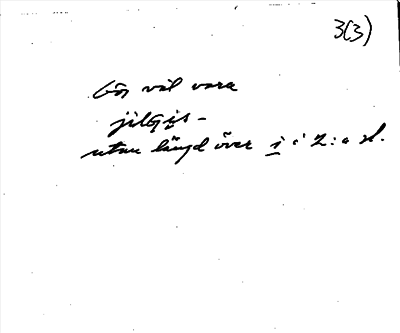 3(3)
bör väl vara
jilgis-
utan längd över i i 2:a st.